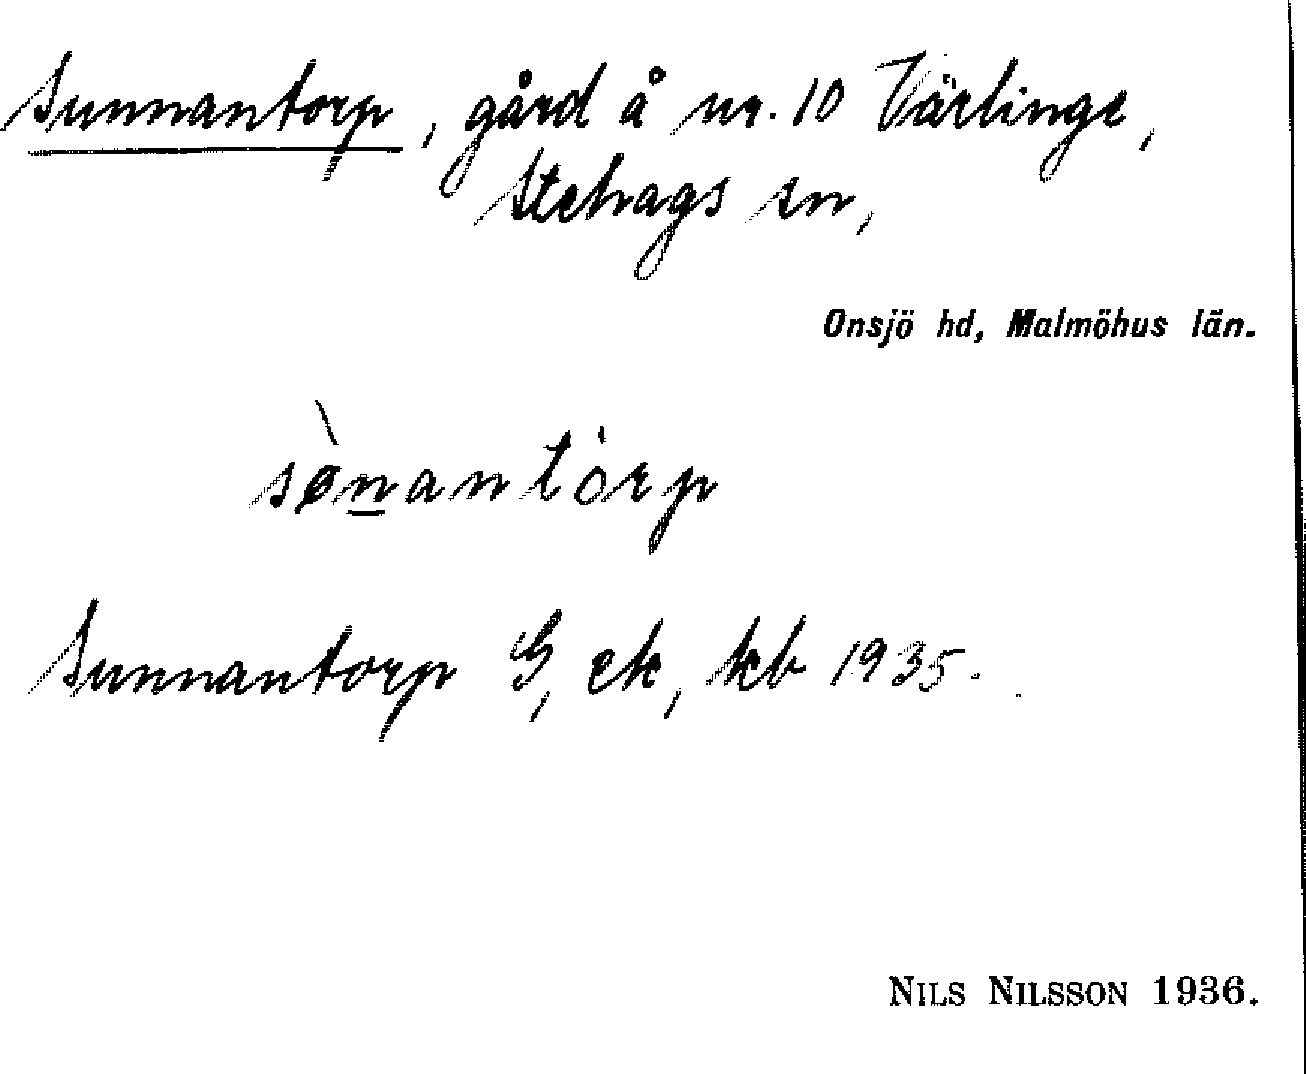 Sunnantorp, gård å nr. 10 Värlinge,
Stehags sn,
Onsjö hd, Malmöhus län.
sø̀n̲antȯrp
Sunnantorp G, ek, kb 1935.
NILS NILSSON 1936.